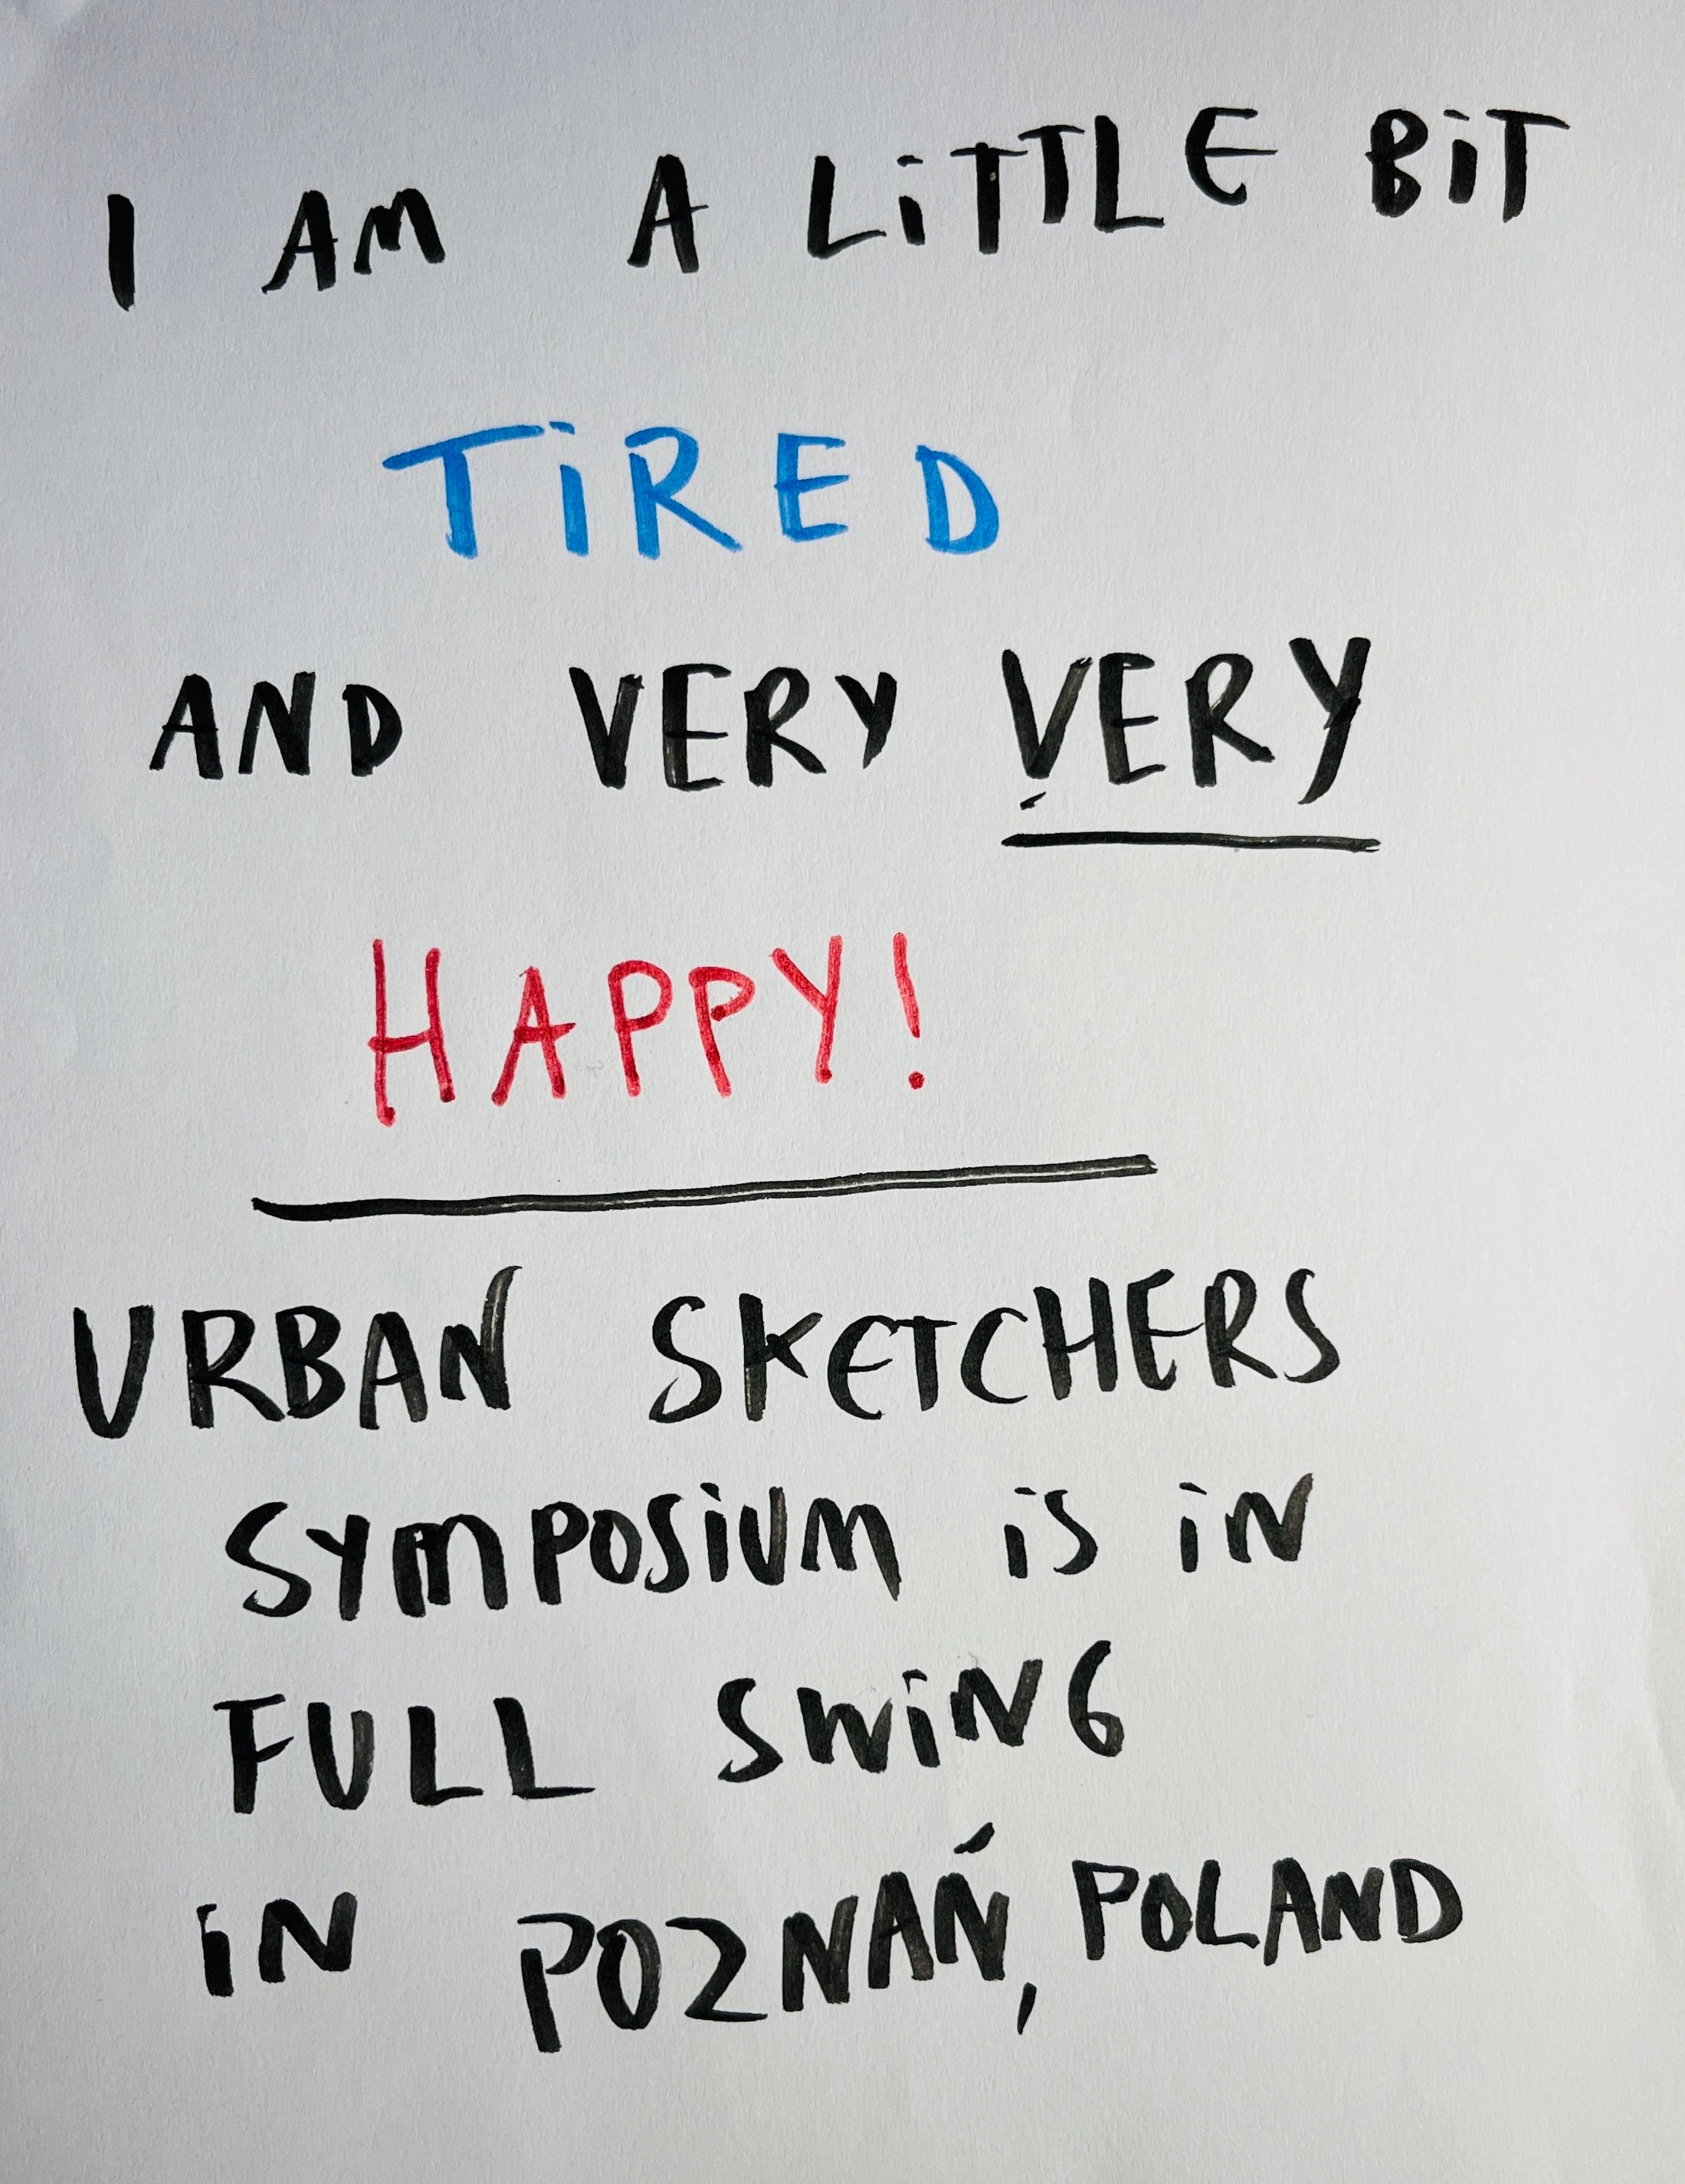 I AM A LiTTLE BiT
TiRED
AND VERY VERY
HAPPY!
URBAN SKETCHERS
SYMPOSiUM iS iN
FULL SWiNG
iN POZNAŃ, POLAND